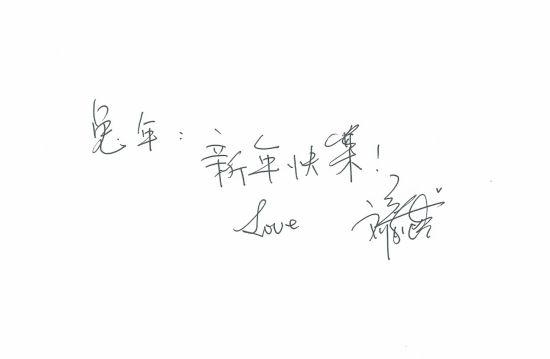 兔年：新年快樂！
Love